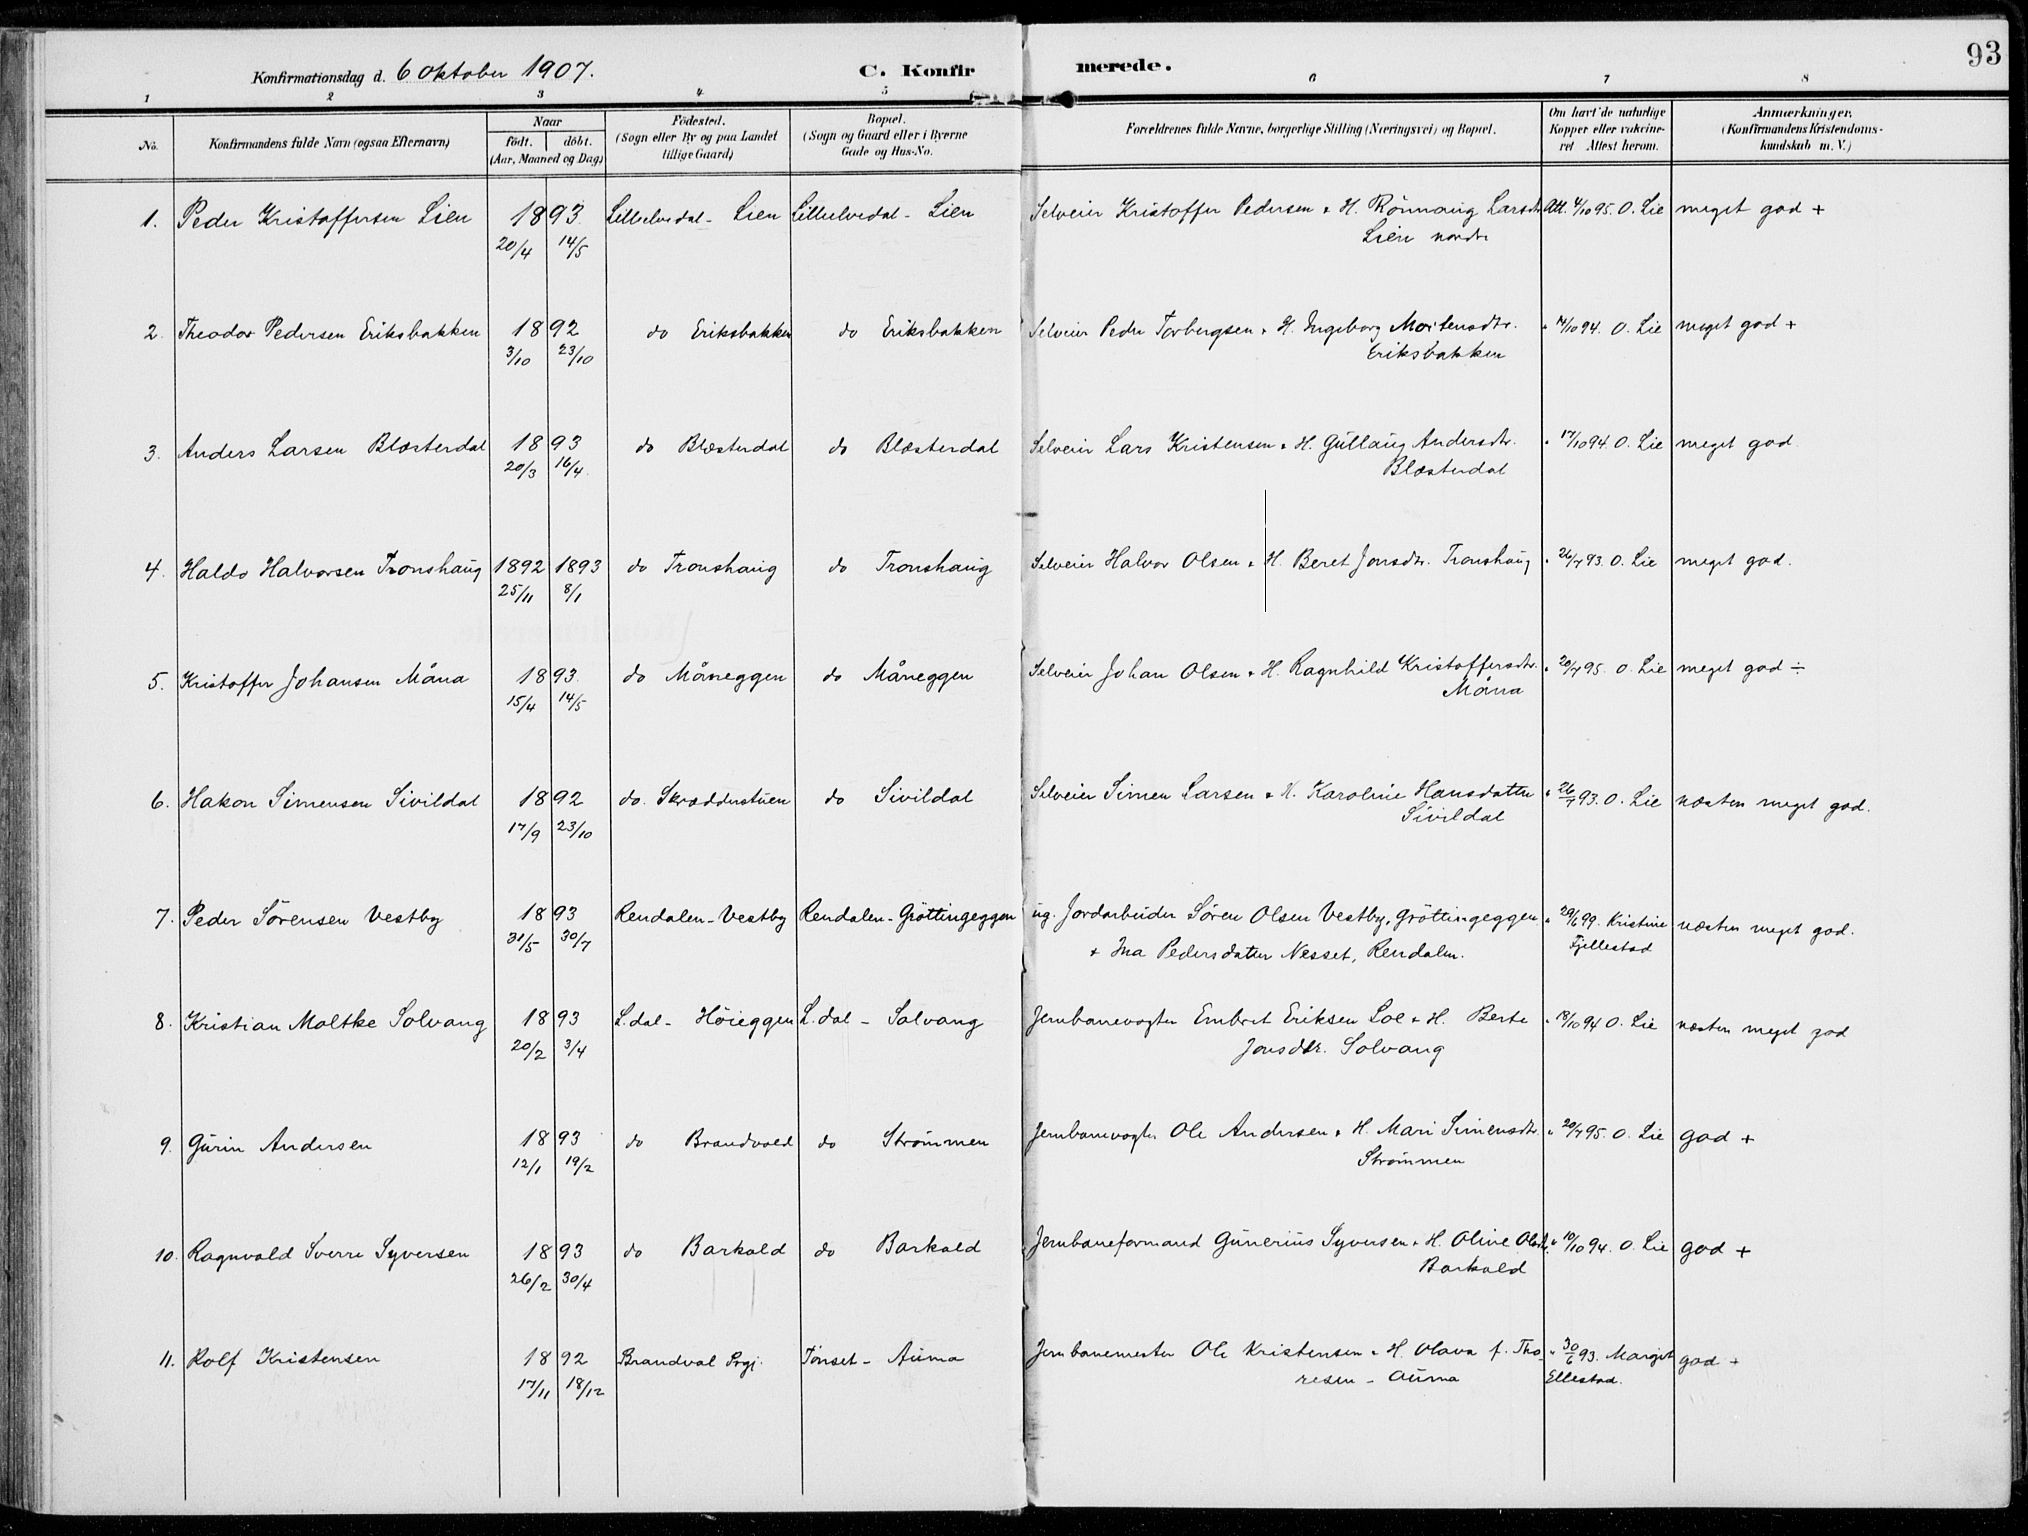 93
Konfirmationsdag d. 6 oktober 1907. C. Konfirmerede.
1 2 3 4 5 6 7 8
No. Konfirmandens fulde Navn (ogsaa Efternavn) Naar født. døbt. (Aar, Maaned og Dag) Fødested. (Sogn eller By og paa Landet tillige Gaard) Bopæl. (Sogn og Gaard eller i Byerne Gade og Hus-No. Forældrenes fulde Navne, borgerlige Stilling (Næringsvei) og Bopæl. Om havt de naturlige Kopper eller vakcineret Attest herom. Anmærkninger, (Konfirmandens Kristendomskundskab m. V.)
1. Peder Kristoffersen Lien 1893 Lilleelvedal - Lien Lilleelvedal - Lien Selveier Kristoffer Pedersen & H. Rönnaug Larsdtr Att. 4/10 95. O. Lie meget god +
20/4 14/5 Lien nordre
2. Theodor Pedersen Eriksbakken 1892 do Eriksbakken do Eriksbakken Selveier Peder Torbergsen & H. Ingeborg Mortensdtr. " 17/10 94. O. Lie meget god +
3/10 23/10 Eriksbakken
3. Anders Larsen Blæsterdal 1893 do Blæsterdal do Blæsterdal Selveier Lars Kristensen & H. Gullaug Andersdtr. " 17/10 94. O. Lie meget god
20/3 16/4 Blæsterdal
4. Haldo Halvorsen Tronshaug 1892 1893 do Tronshaug do Tronshaug Selveier Halvor Olsen & H. Beret Jonsdtr. Tronshaug " 26/7 93. O. Lie meget god.
25/11 8/1
5. Kristoffer Johansen Måna 1893. do Måneggen do Måneggen Selveier Johan Olsen & H. Ragnhild Kristoffersdtr. " 20/7 95. O. Lie meget god ÷
15/4 14/5 Måna
6. Hakon Simensen Sivildal 1892 do. Skrædderstuen do Sivildal Selveier Simen Larsen & H. Karoline Hansdatter " 26/7 93. O. Lie næsten meget god.
17/9 23/10 Sivildal
7. Peder Sörensen Vestby 1893 Rendalen - Vestby Rendalen - Gröttingeggen ug. Jordarbeider Sören Olsen Vestby, Gröttingeggen " 29/6 99. Kristine næsten meget god.
31/5 30/7 & Ina Pedersdatter Nesset, Rendalen. Fjellestad
8. Kristian Moltke Solvang 1893 L.dal - Höieggen L.dal - Solvang Jernbanevogter Embret Eriksen Loe & H. Berte " 18/10 94 O. Lie næsten meget god
20/2 3/4 Jonsdtr. Solvang
9. Gurin Andersen 1893 do Brandvold do Strømmen Jernbanevogter Ole Andersen & H. Mari Simensdtr. " 20/7 95. O. Lie god +
12/1 19/2 Strømmen
10. Ragnvald Sverre Syversen 1893 do Barkald do Barkald Jernbaneformand Gunerius Syversen & H. Oline Olsdtr. " 18/10 94. O. Lie god +
26/2 30/4 Barkald
11. Rolf Kristensen 1892 Brandval Prgj. Tønset - Auma Jernbanemester Ole Kristensen & H. Olava f. Tho- " 30/6 93. Margit god +
17/11 18/12 resen - Auma Ellestad.